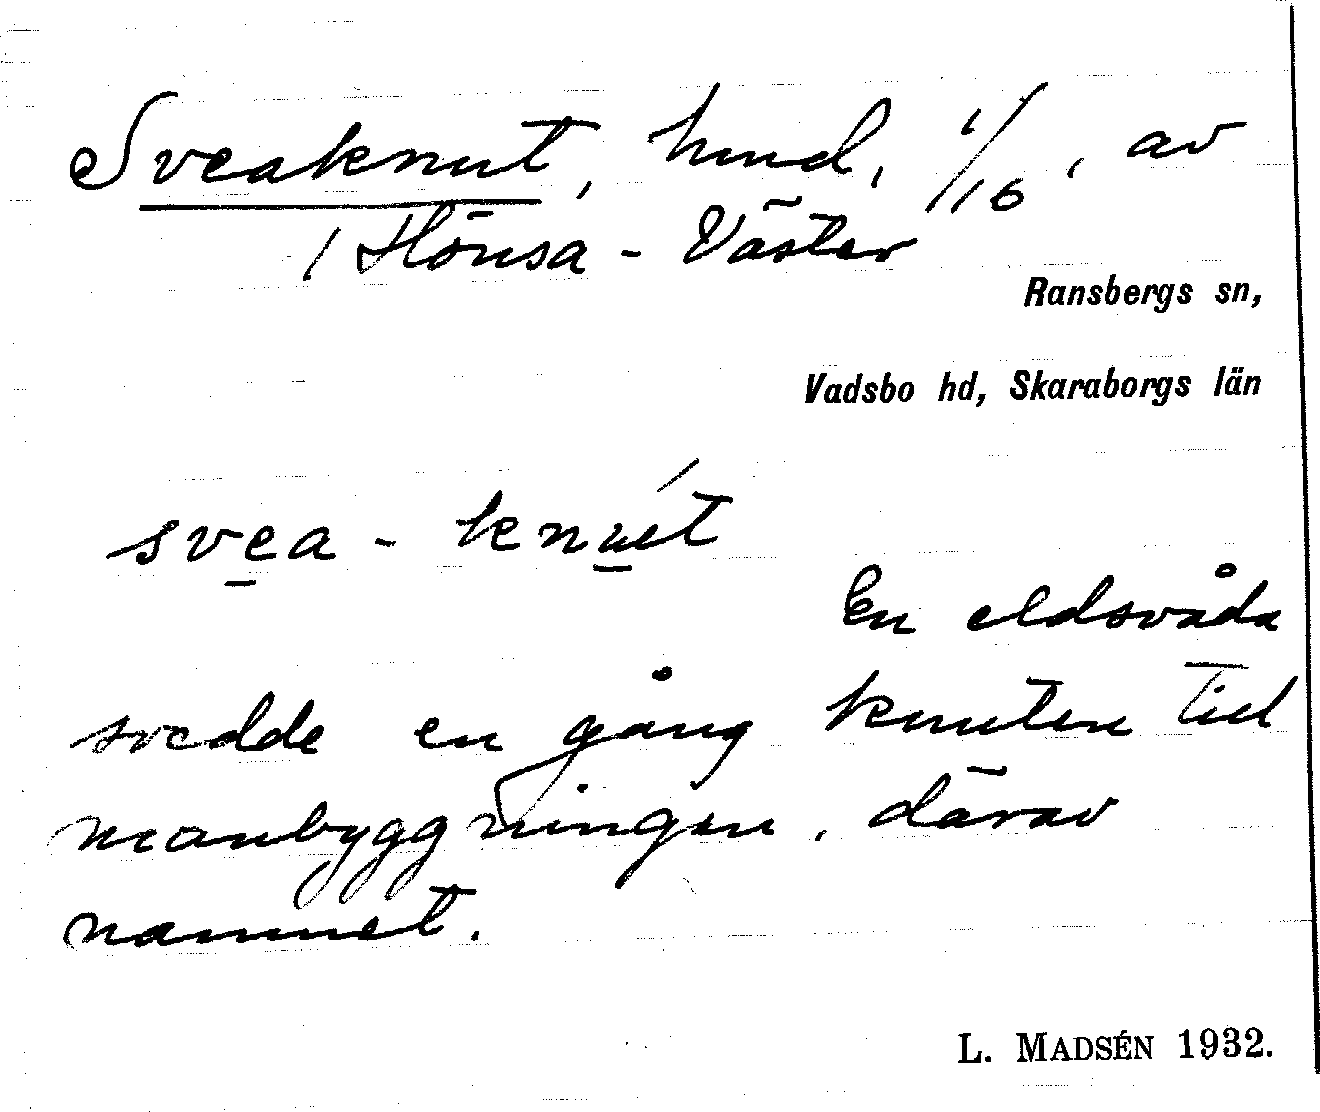 Sveaknut, hmd, 1/16, av
/ Hönsa - Väster
Ransbergs sn,
Vadsbo hd, Skaraborgs län
svea - knuét
En eldsvåda
svedde en gång knuten till
manbyggningen, därav
namnet.
L. MADSÉN 1932.